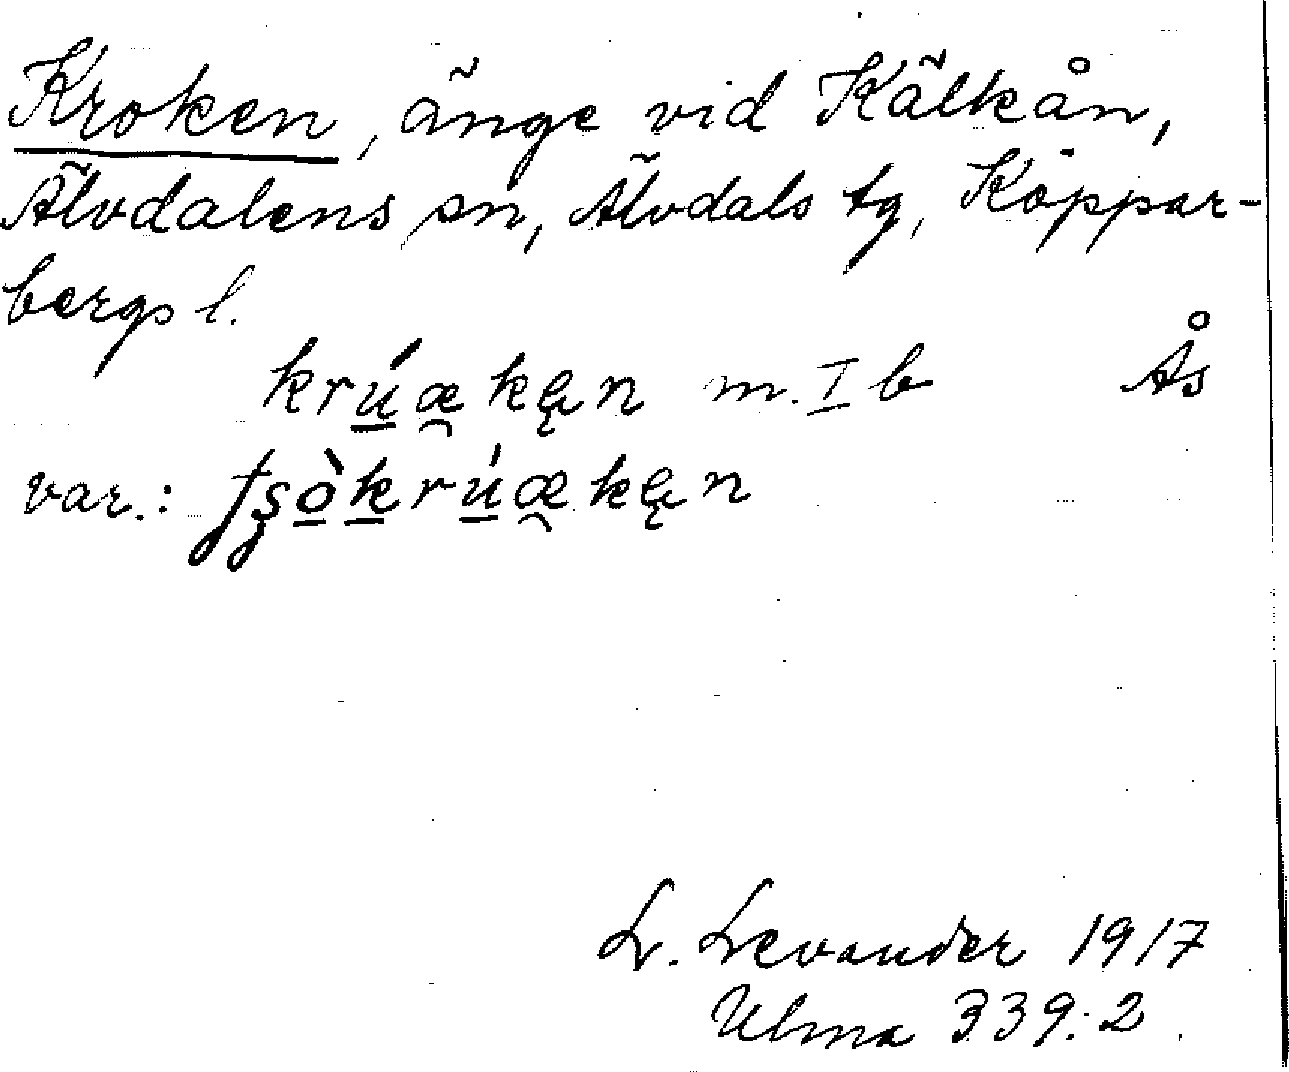 Kroken, änge vid Kälkån,
Älvdalens sn, Älvdals tg, Koppar-
bergs l.
krúæken m. I b Ås
var.:
L. Levander 1917
Ulma 339:2.